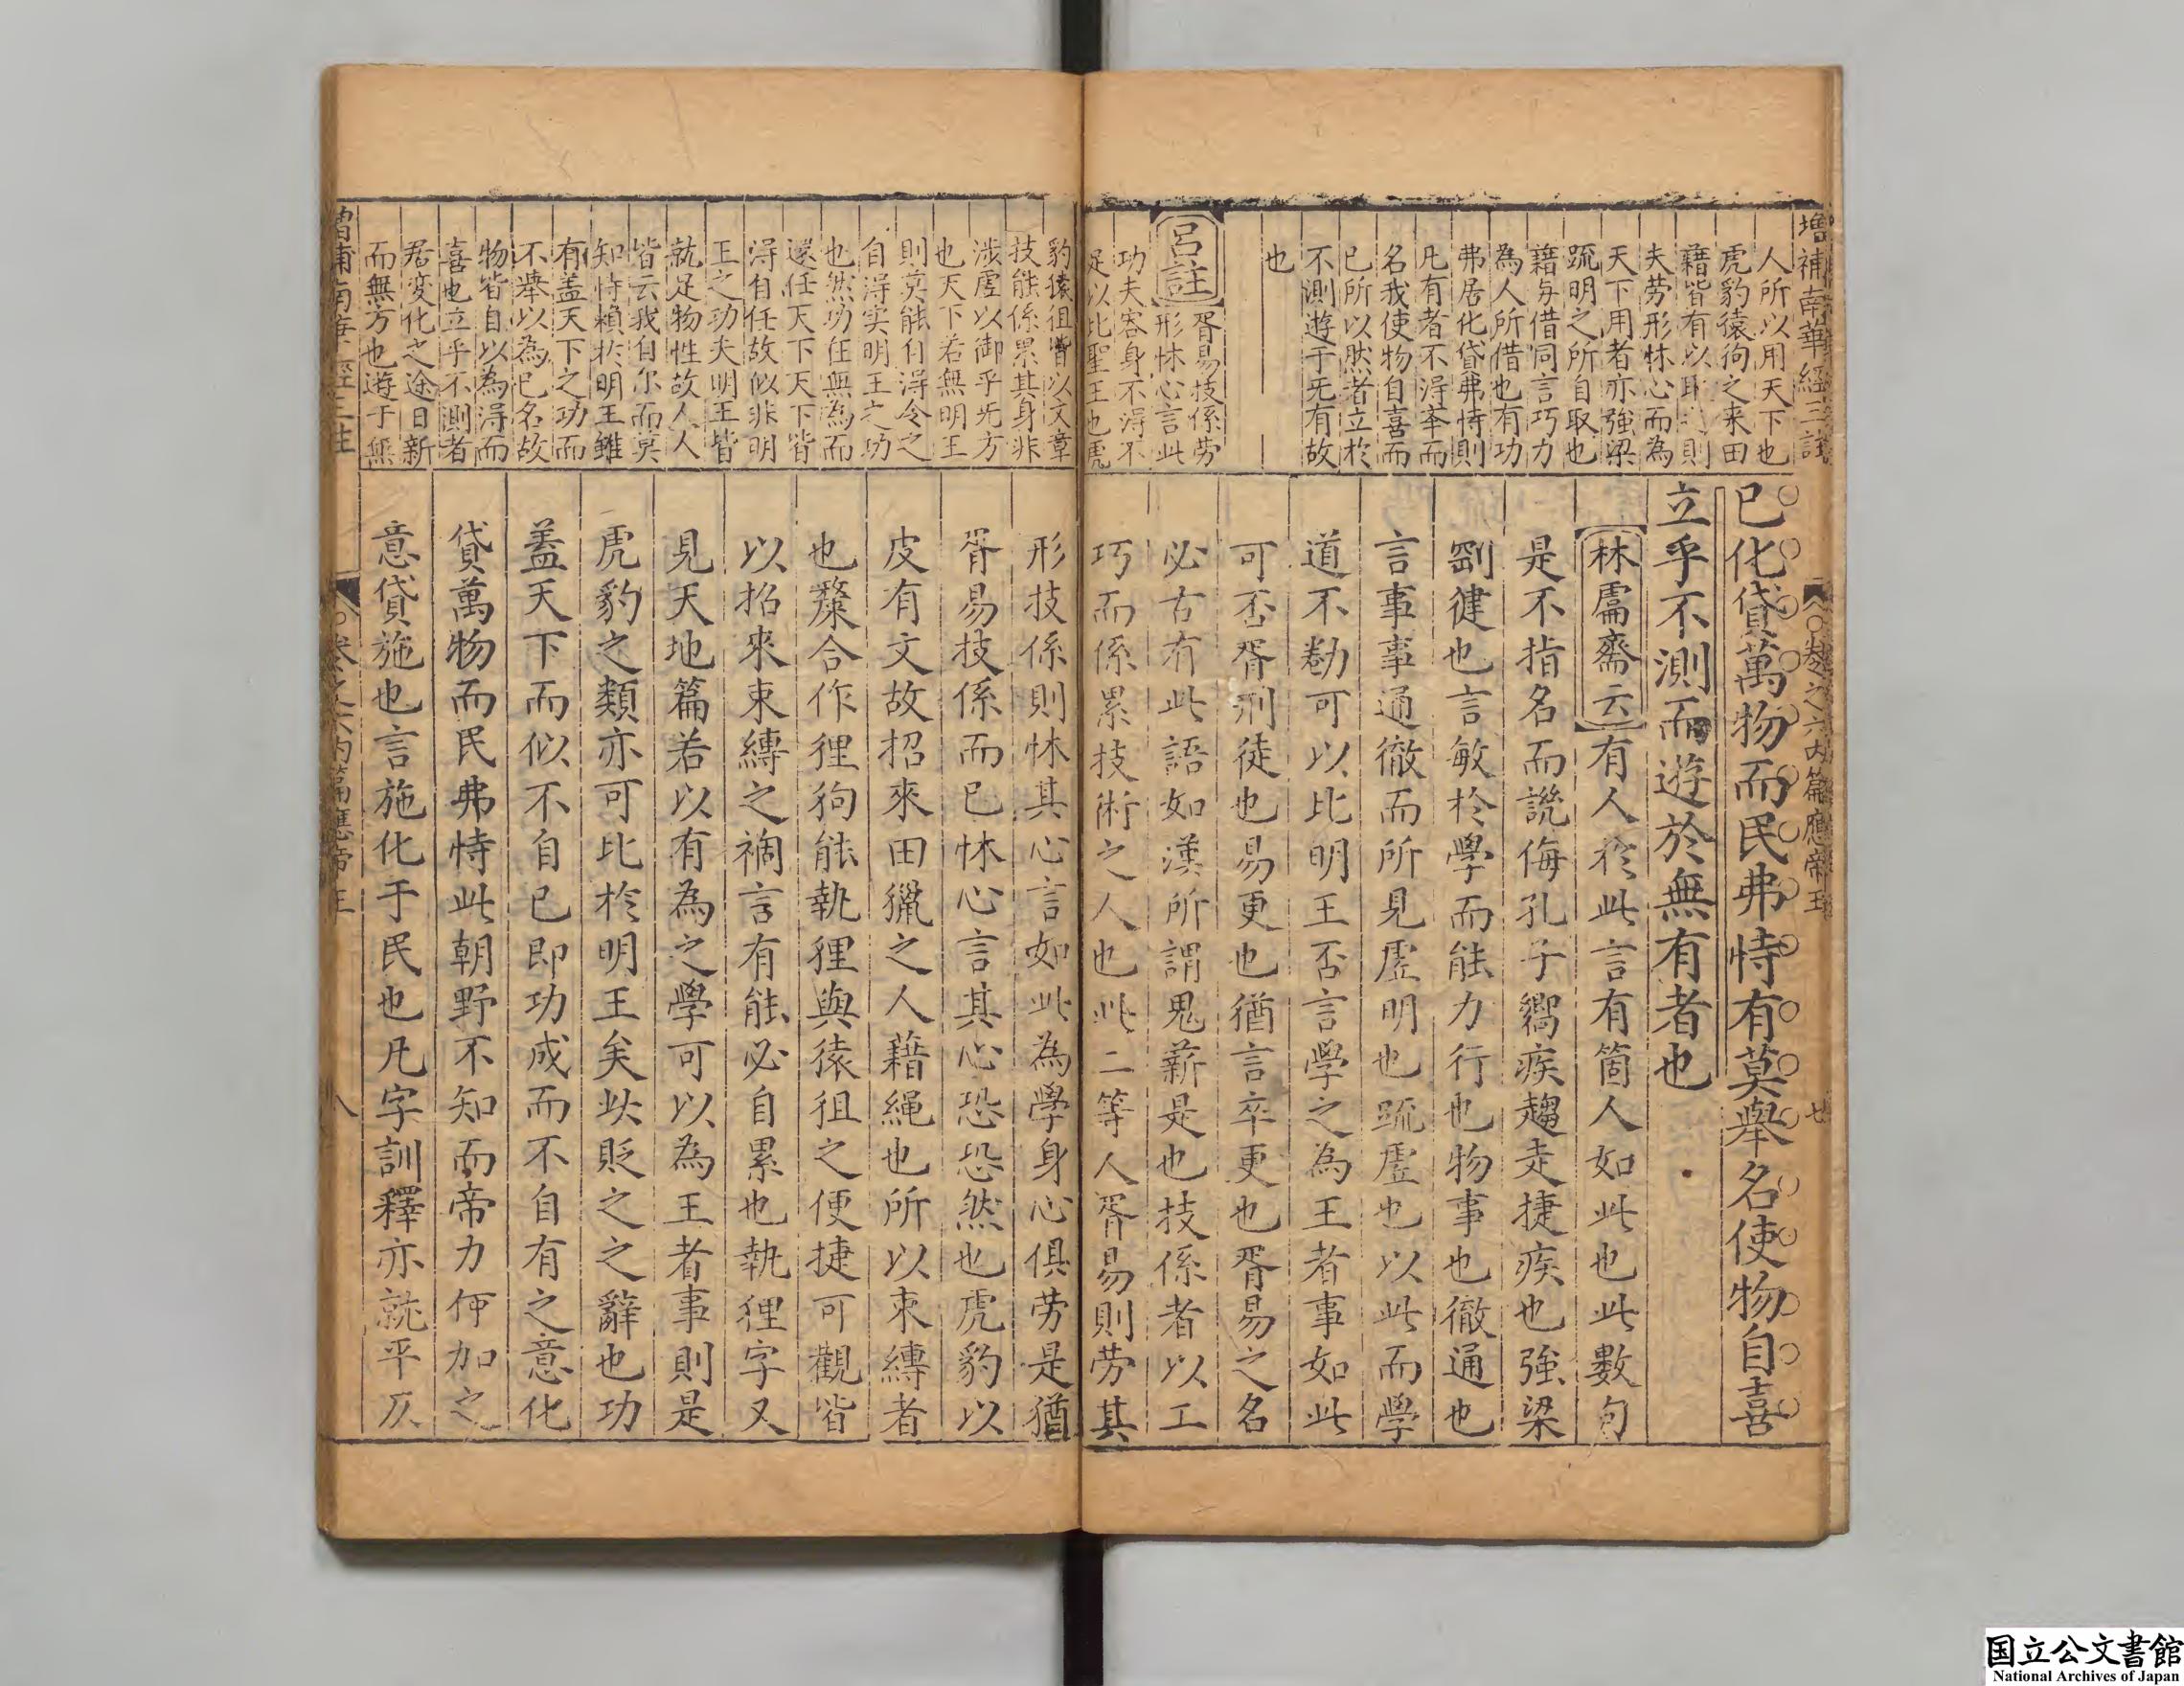 増補南華經三註
人所以用天下也
虎豹猿狗之来田
藉皆有以取之則
夫劳形怵心而為
天下用者亦強梁
䟽明之所自取也
藉与借同言巧力
為人所借也有功
弗居化貸弗恃則
凢有者不淂峯而
名我使物自喜而
已所以然者立於
不測遊于旡有故
也
呂註
胥易技係劳
形怵心言此
功夫客身不淂不
足以比聖王也虎
卷之六内篇應帝王
廿
已化貸萬物而民弗恃有莫舉名使物自喜
立乎不測而遊於無有者也
林鬳齋云有人於此言有箇人如此也此數句
是不指名而譏侮孔子嚮疾趨走捷疾也強梁
剛健也言敏於學而能力行也物事也徹通也
言事事通徹而所見虗明也䟽虗也以此而學
道不勌可以比明王否言學之為王者事如此
可否胥刑徒也易更也猶言卒更也胥易之名
必古有此語如漢所謂鬼薪是也技係者以工
巧而係累技術之人也此二等人胥易則劳其
豹猿狙皆以文章
技能係累其身非
涉虗以御乎旡方
也天下若無明王
則莫能自淂令之
自淂实明王之功
也然功在無為而
還任天下天下皆
淂自任故似非明
王之功夫明王皆
就足物性故人人
皆云我自尓而莫
知恃賴於明王雖
有盖天下之功而
不舉以為已名故
物皆自以為淂而
喜也立乎不測者
君变化之途日新
而無方也遊于無
形技係則怵其心言如此為學身心俱劳是猶
胥易技係而已怵心言其心恐恐然也虎豹以
皮有文故招來田獵之人藉䋲也所以束縳者
也斄合作狸狗能執狸與猿狙之便捷可觀皆
以招來束縳之禍言有能必自累也執狸字又
見天地篇若以有為之學可以為王者事則是
虎豹之類亦可比於明王矣此貶之之辭也功
盖天下而似不自已即功成而不自有之意化
貸萬物而民弗恃此朝野不知而帝力何加之
意貸施也言施化于民也凢字訓釋亦就平仄
増補南華經三註
卷之六内篇應帝王
八
国立公文書館
National Archives of Japan